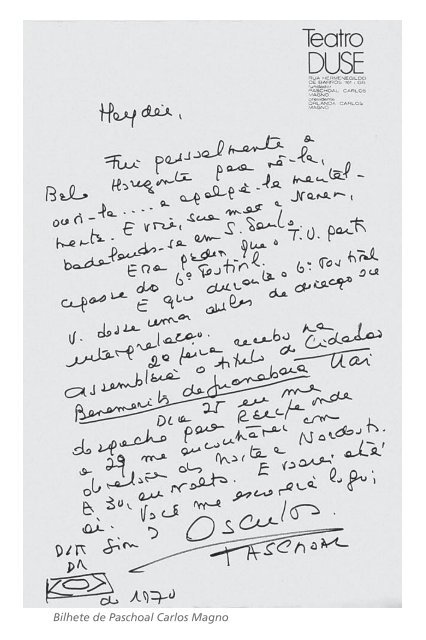 Teatro
DUSE
RUA HERMENEGILDO
DE BARROS 161
fundador
PASCHOAL CARLOS
MAGNO
presidente
ORLANDA CARLOS
MAGNO
Haydée,
Fui pessoalmente a
Belo Horizonte para vê-la,
ouvi-la.... e apalpá-la mental-
mente. E você, sua má e
badalando-se em S. Paulo.
Era pedir que o T.U. parti
cipasse do 6º Festival.
E que durante o 6º Festival
V. desse umas aulas de direção ou
interpretação.
2ª feira recebo na
Assembléia o titulo de Cidadão
Benemérito da Guanabara
Dia 25 eu me
despacho para Recife onde
a 29 me encontrarei com
diretores do Norte e Nordeste.
E 30, eu volto. E voarei até
aí. Você me
Sim?
Osculos.
PASCHOAL
de 1970
Bilhete de Paschoal Carlos Magno